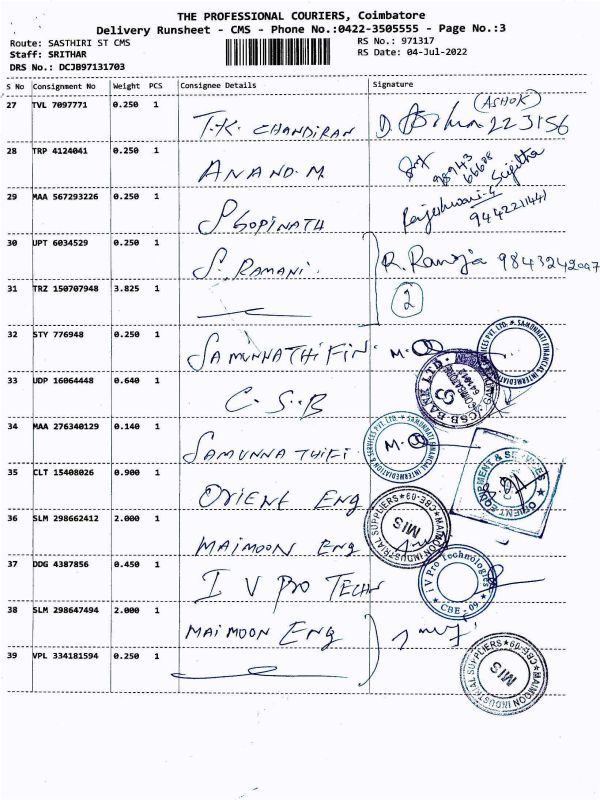 THE PROFESSIONAL COURIERS, Coimbatore
Delivery Runsheet - CMS - Phone No.:0422-3505555 - Page No.:3
Route: SASTHIRI ST CMS RS No.: 971317
Staff: SRITHAR RS Date: 04-Jul-2022
DRS No.: DCJB97131703
S No Consignment No Weight PCS Consignee Details Signature
27 TVL 7097771 0.250 1 T.K. CHANDIRAN (ASHOK) 223156
28 TRP 4124041 0.250 1 ANAND.M 98943 66608 Sujitha
29 MAA 567293226 0.250 1 S GOPINATH Rajeshwari 9442211441
30 UPT 6034529 0.250 1 S. RAMANI. R. Ramya 9843242097
31 TRZ 150707948 3.825 1 2
32 STY 776948 0.250 1 SAMUNNATHI FIN M. SAMUNNATI FINANCIAL INTERMEDIATION & SERVICES PVT. LTD.
33 UDP 16064448 0.640 1 C.S.B CSB BANK LTD.
34 MAA 276340129 0.140 1 SAMUNNATHIFI M. SAMUNNATI FINANCIAL INTERMEDIATION & SERVICES PVT. LTD.
35 CLT 15408026 0.900 1 ORIENT ENG ORIENT EQUIPMENT & SERVICES
36 SLM 298662412 2.000 1 MAIMOON ENG MAIMOON INDUSTRIAL SUPPLIERS CBE-09 MIS
37 DDG 4387856 0.450 1 I V PRO TECHS I V Pro Technologies CBE - 09
38 SLM 298647494 2.000 1 MAIMOON ENG
39 VPL 334181594 0.250 1 MAIMOON INDUSTRIAL SUPPLIERS CBE-09 MIS